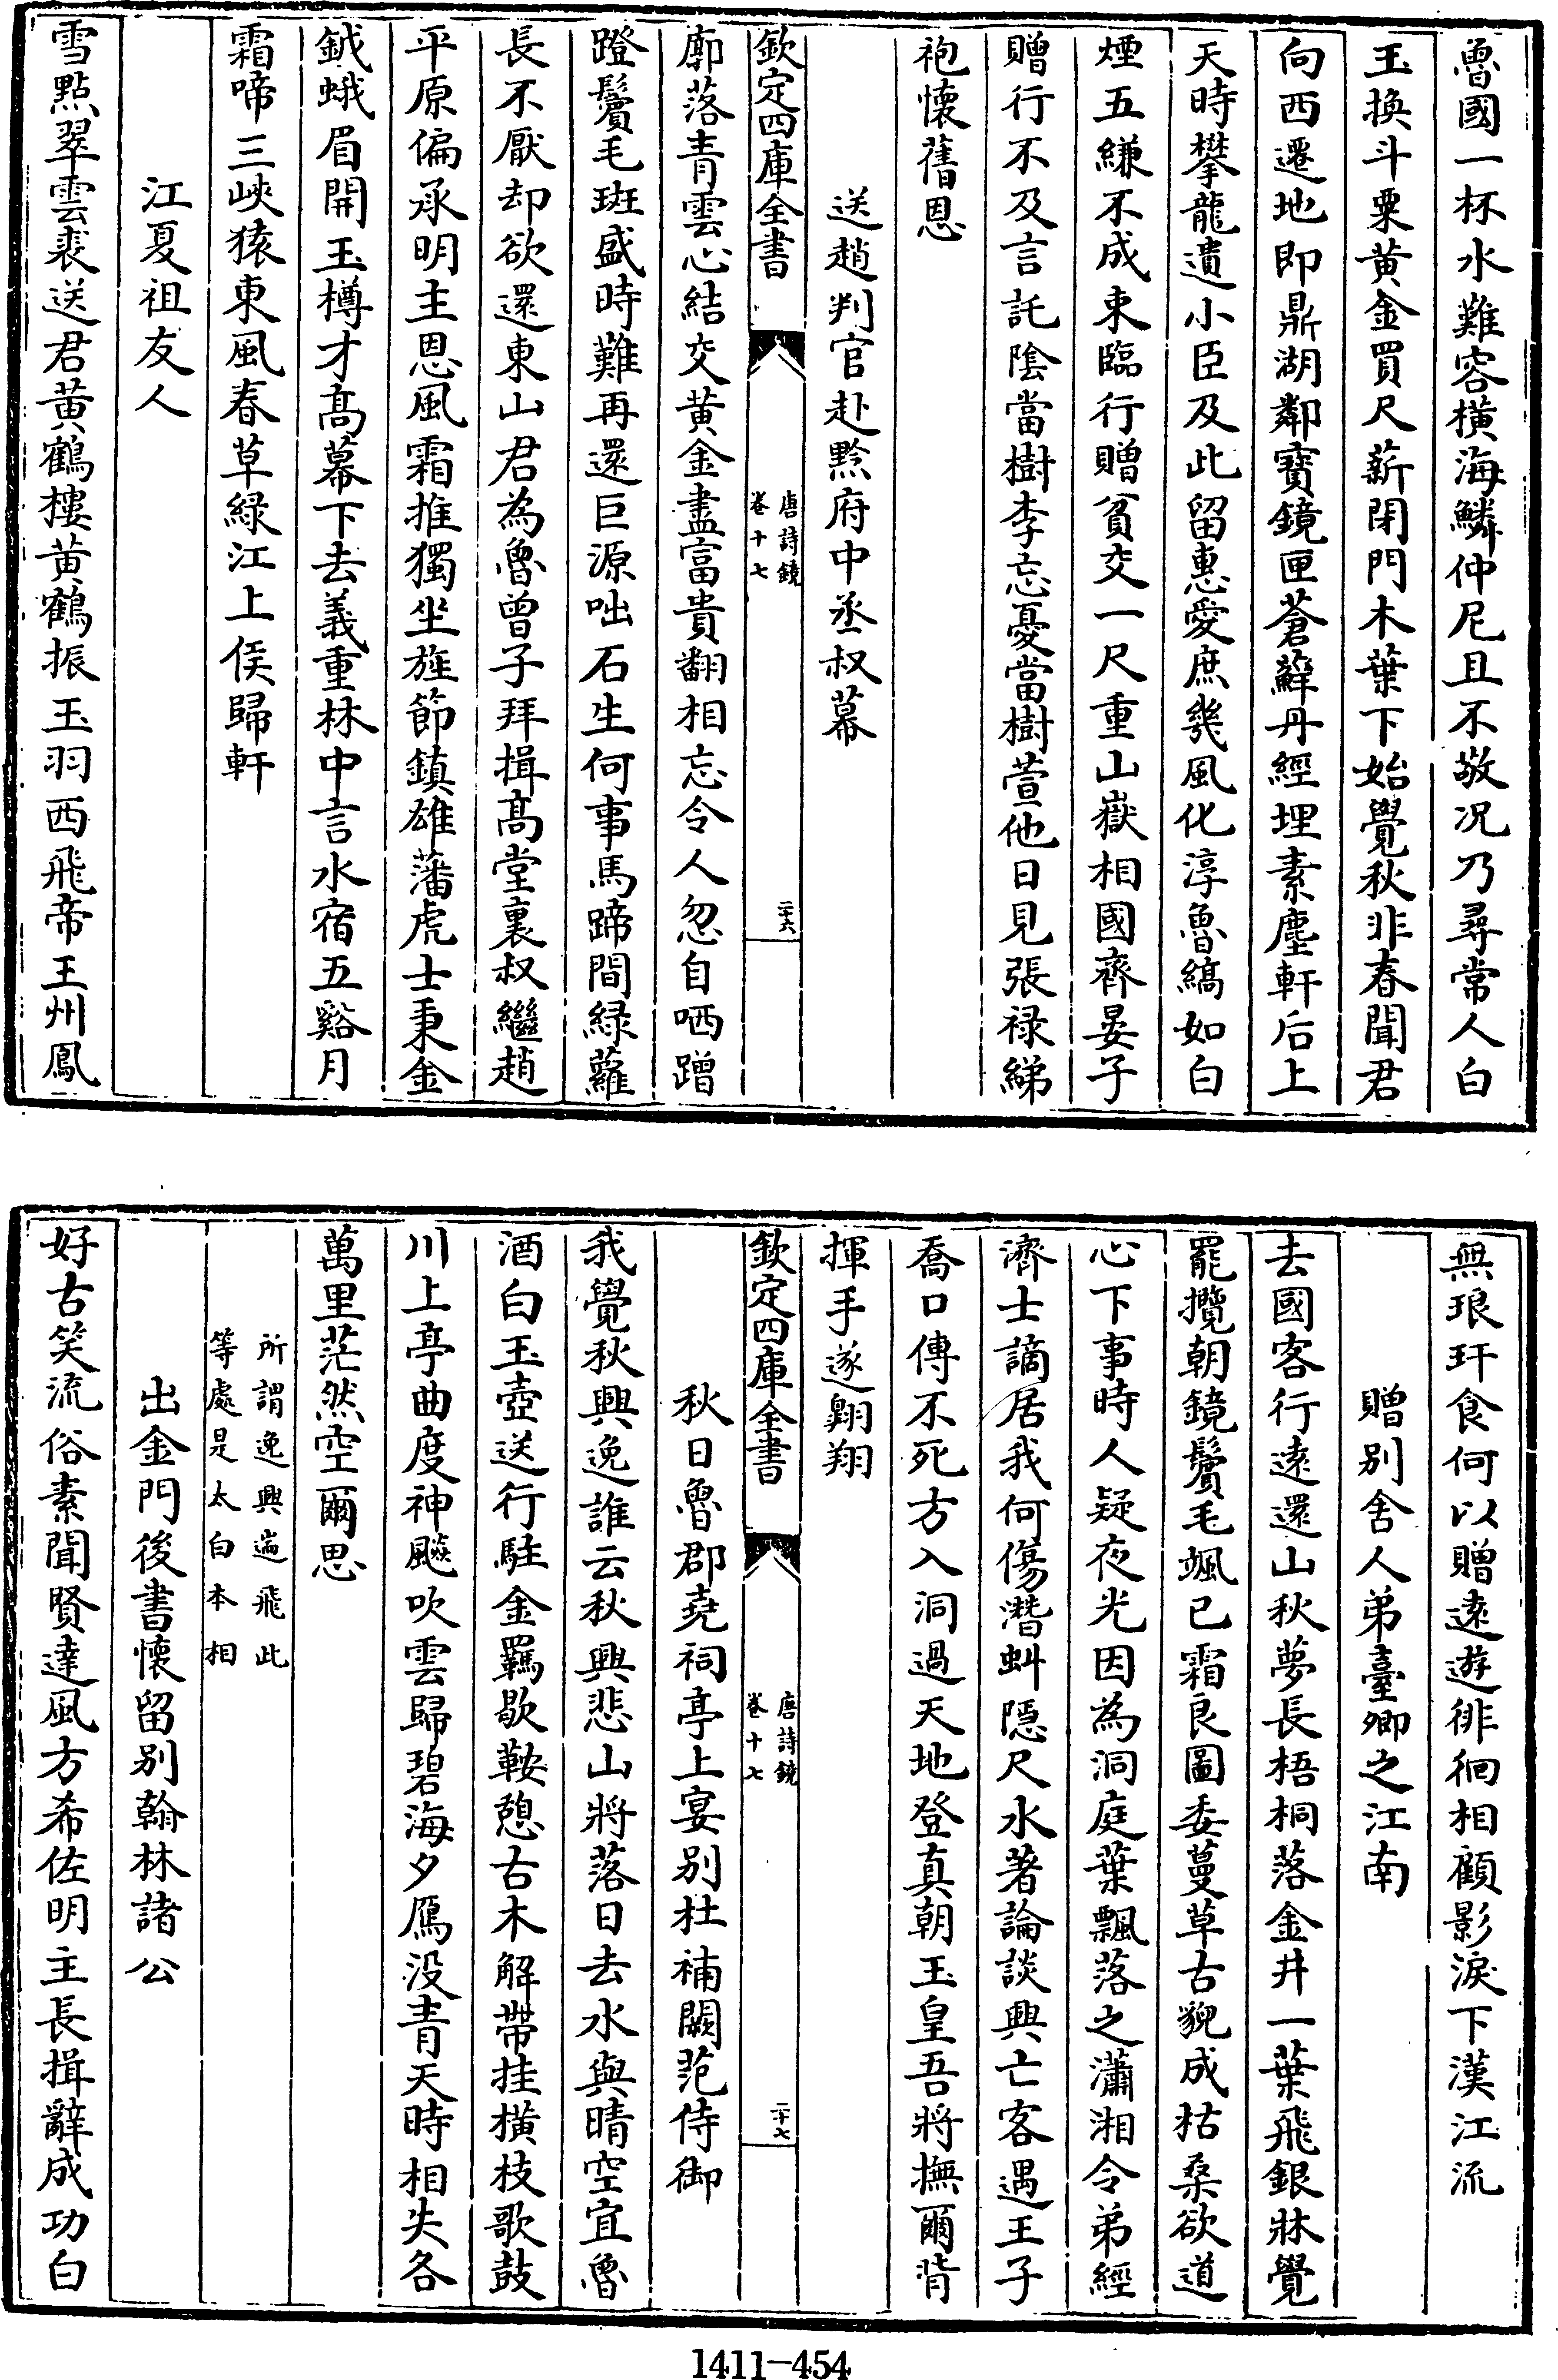 魯國一杯水難容橫海鱗仲尼且不敬况乃尋常人白
玉換斗粟黄金買尺薪閉門木葉下始覺秋非春聞君
向西遷地即鼎湖鄰寶鏡匣蒼蘚丹經埋素塵軒后上
天時攀龍遺小臣及此留惠愛庶幾風化淳魯縞如白
煙五縑不成束臨行贈貧交一尺重山嶽相國齊晏子
贈行不及言託陰當樹李忘憂當樹萱他日見張禄綈
袍懷舊恩
送趙判官赴黔府中丞叔幕
欽定四庫全書
唐詩鏡
卷十七
二十六
廓落青雲心結交黄金盡富貴翻相忘令人忽自哂蹭
蹬鬢毛斑盛時難再還巨源咄石生何事馬蹄間緑蘿
長不厭却欲還東山君為魯曾子拜揖髙堂裏叔繼趙
平原偏承明主恩風霜推獨坐旌節鎮雄藩虎士秉金
鉞蛾眉開玉樽才髙幕下去義重林中言水宿五谿月
霜啼三峽猿東風春草緑江上候歸軒
江夏祖友人
雪點翠雲裘送君黄鶴樓黄鶴振玉羽西飛帝王州鳳
無琅玕食何以贈逺遊徘徊相顧影淚下漢江流
贈别舍人弟臺卿之江南
去國客行逺還山秋夢長梧桐落金井一葉飛銀牀覺
罷攬朝鏡鬢毛颯已霜良圖委蔓草古貌成枯桑欲道
心下事時人疑夜光因為洞庭葉飄落之瀟湘令弟經
濟士謫居我何傷潛虯隱尺水著論談興亡客遇王子
喬口傳不死方入洞過天地登真朝玉皇吾將撫爾背
揮手遂翺翔
欽定四庫全書
唐詩鏡
卷十七
二十七
秋日魯郡堯祠亭上宴别杜補闕范侍御
我覺秋興逸誰云秋興悲山將落日去水與晴空宜魯
酒白玉壺送行駐金羈歇鞍憩古木解帶挂橫枝歌鼓
川上亭曲度神飈吹雲歸碧海夕鴈没青天時相失各
萬里茫然空爾思
所謂逸興遄飛此
等處是太白本相
出金門後書懷留别翰林諸公
好古笑流俗素聞賢達風方希佐明主長揖辭成功白
1411-454